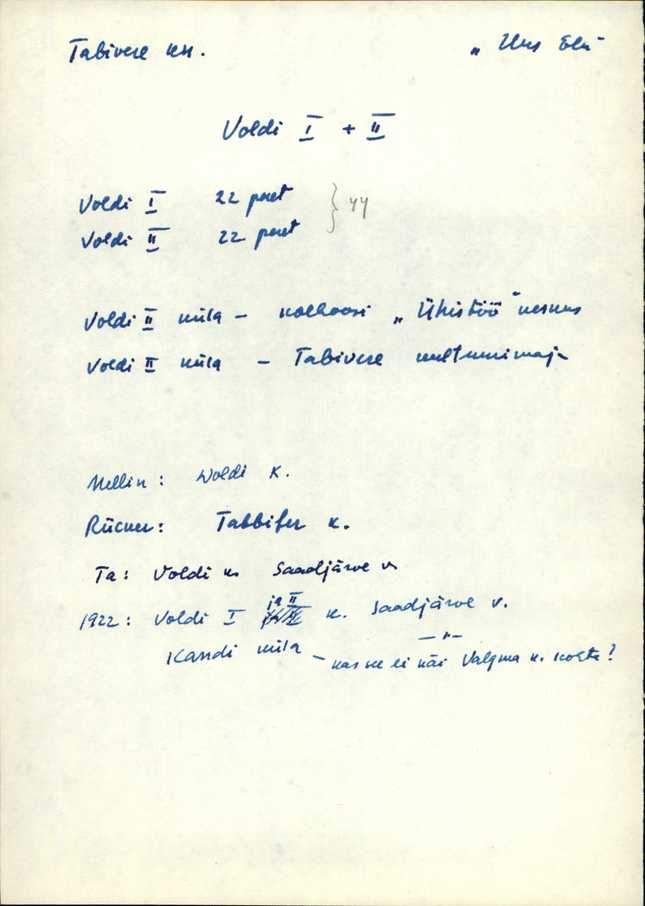 Tabivere kn. „Uus Elu"
Voldi I + II
Voldi I 22 peret } 44
Voldi II 22 peret
Voldi II küla - kolhoosi „Ühistöö" keskus
Voldi II küla - Tabivere kultuurimaja
Mellin: Woldi K.
Rücker: Tabbifer k.
Ta: Voldi k. Saadjärve v.
1922: Voldi I ja II k. Saadjärve v.
Kandi küla - kas see ei käi Valgma k. kohta?